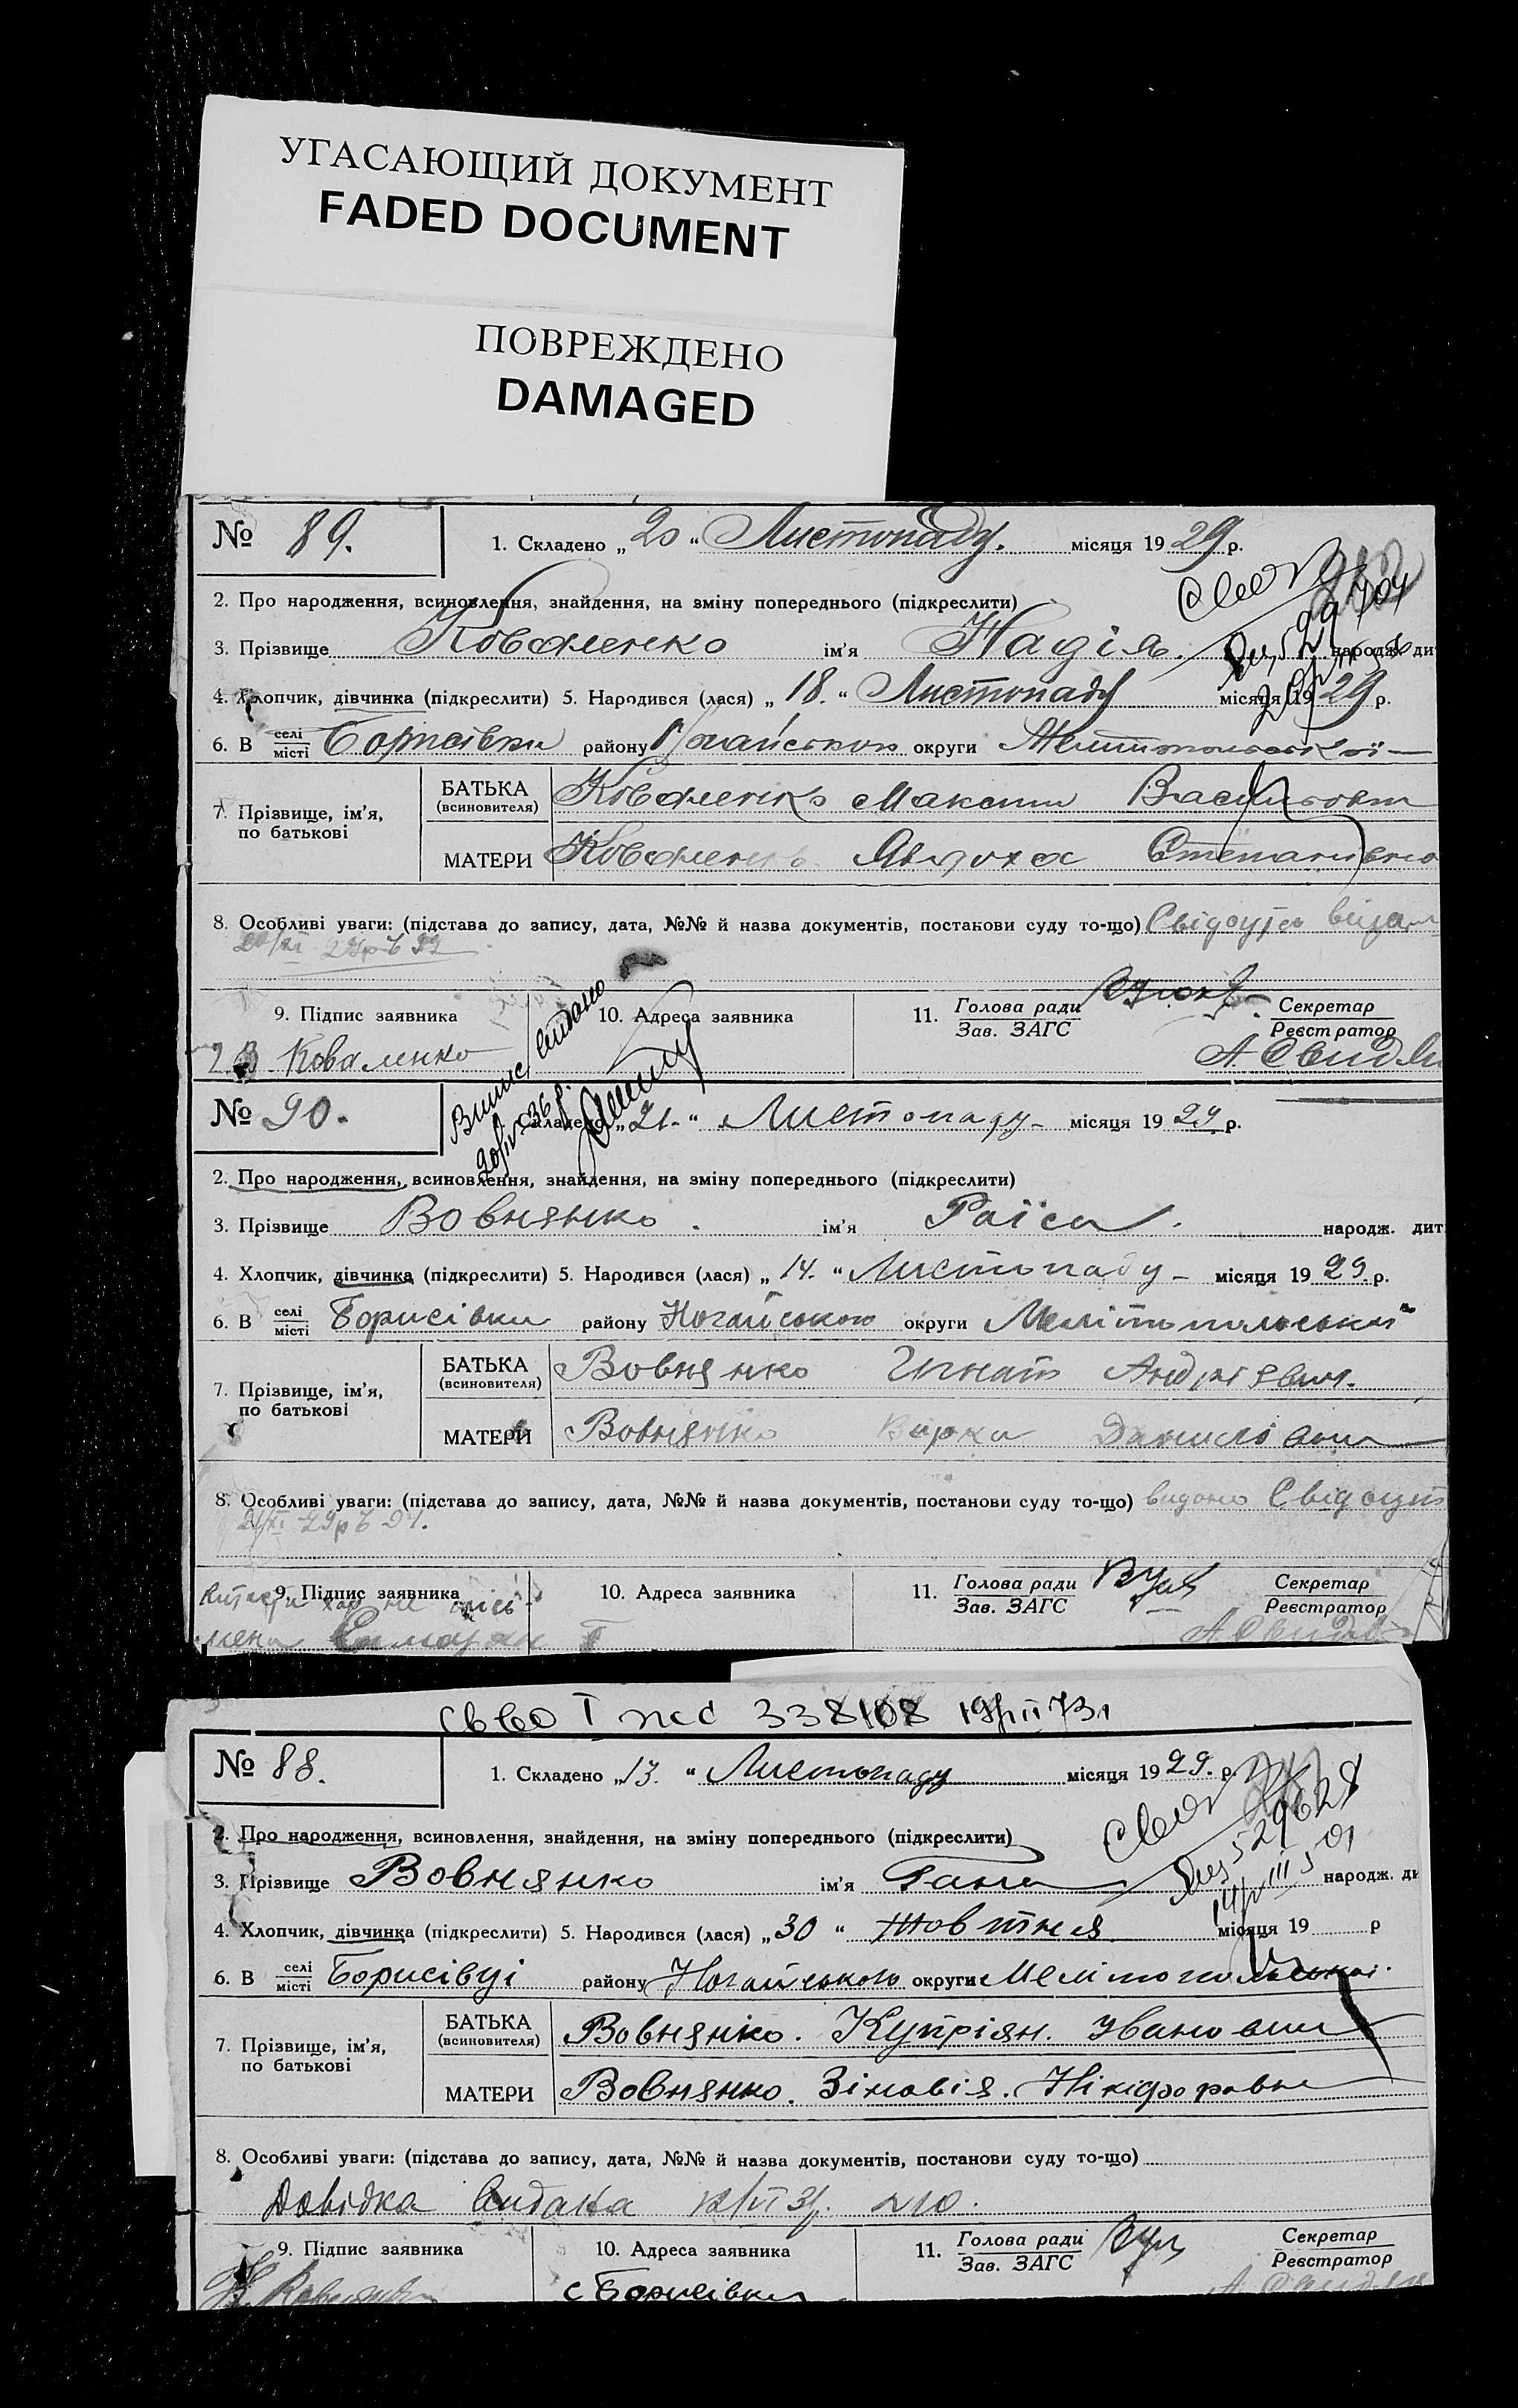 УГАСАЮЩИЙ ДОКУМЕНТ
FADED DOCUMENT
ПОВРЕЖДЕНО
DAMAGED
№ 89. 1. Складено „20“ Листопаду. місяця 1929 р.
2. Про народження, всиновлення, знайдення, на зміну попереднього (підкреслити)
3. Прізвище Коваленко ім'я Надія. народж. ди
4. Хлопчик, дівчинка (підкреслити) 5. Народився (лася) „18.“ Листопаду місяця 1929 р.
6. В селі місті Борисівки району округи Мелитопольської
7. Прізвище, ім'я, по батькові
БАТЬКА (всиновителя) Коваленко Максим Васильович
МАТЕРИ Коваленко Явдоха Степанівна
8. Особливі уваги: (підстава до запису, дата, №№ й назва документів, постанови суду то-що) Свідоцтво
9. Підпис заявника 10. Адреса заявника 11. Голова ради Зав. ЗАГС Секретар Реєстратор
Коваленко
№ 90. Складено „21.“ Листопаду місяця 1929 р.
2. Про народження, всиновлення, знайдення, на зміну попереднього (підкреслити)
3. Прізвище Вовнянко. ім'я Раїса. народж. дит
4. Хлопчик, дівчинка (підкреслити) 5. Народився (лася) „14.“ Листопаду місяця 1929. р.
6. В селі місті Борисівки району Ногайського округи Мелітопольськоі
7. Прізвище, ім'я, по батькові
БАТЬКА (всиновителя) Вовнянко Игнат Андріевич.
МАТЕРИ Вовнянко Варка Данилівна
8. Особливі уваги: (підстава до запису, дата, №№ й назва документів, постанови суду то-що) видано Свідоцт
9. Підпис заявника 10. Адреса заявника 11. Голова ради Зав. ЗАГС Секретар Реєстратор
338108
№ 88. 1. Складено „13.“ Листопаду місяця 1929. р
2. Про народження, всиновлення, знайдення, на зміну попереднього (підкреслити)
3. Прізвище Вовнянко ім'я Ганна народж. ди
4. Хлопчик, дівчинка (підкреслити) 5. Народився (лася) „30“ Жовтня місяця 19 р
6. В селі місті Борисівці району Ногайського округи Мелітопольськоі.
7. Прізвище, ім'я, по батькові
БАТЬКА (всиновителя) Вовнянко. Купріян. Іванович
МАТЕРИ Вовнянко. Зіновія. Нікіфоровна
8. Особливі уваги: (підстава до запису, дата, №№ й назва документів, постанови суду то-що)
Довідка видана
9. Підпис заявника 10. Адреса заявника 11. Голова ради Зав. ЗАГС Секретар Реєстратор
с Борисівка